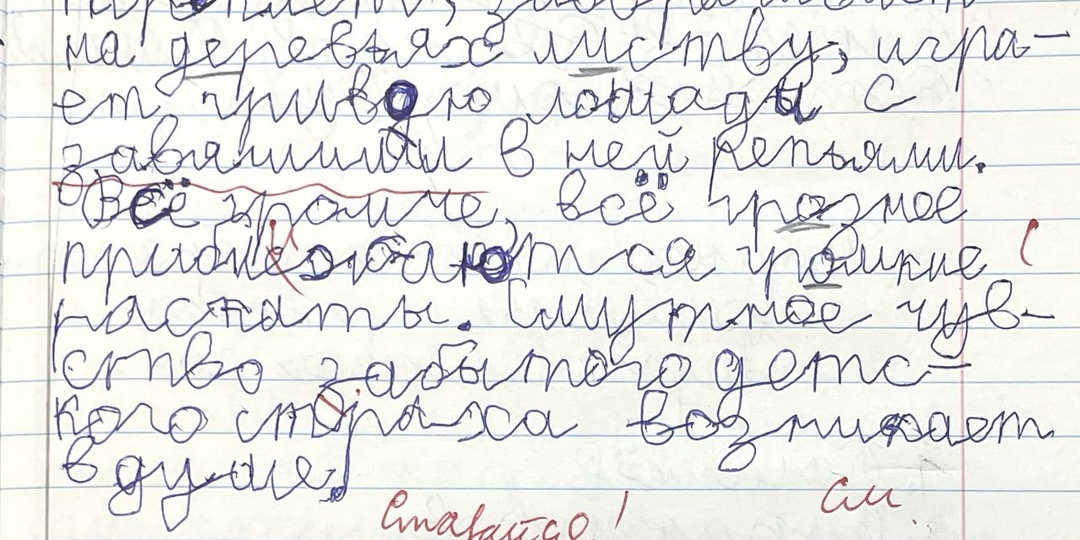 на деревьях листву, игра-
ет гривою лошади с
завялшими в ней репьями.
Всё громче, всё грознее
громкие
раскаты. Смутное чув-
ство забытого детс-
кого страха возникает
в душе.
Старайся! См.